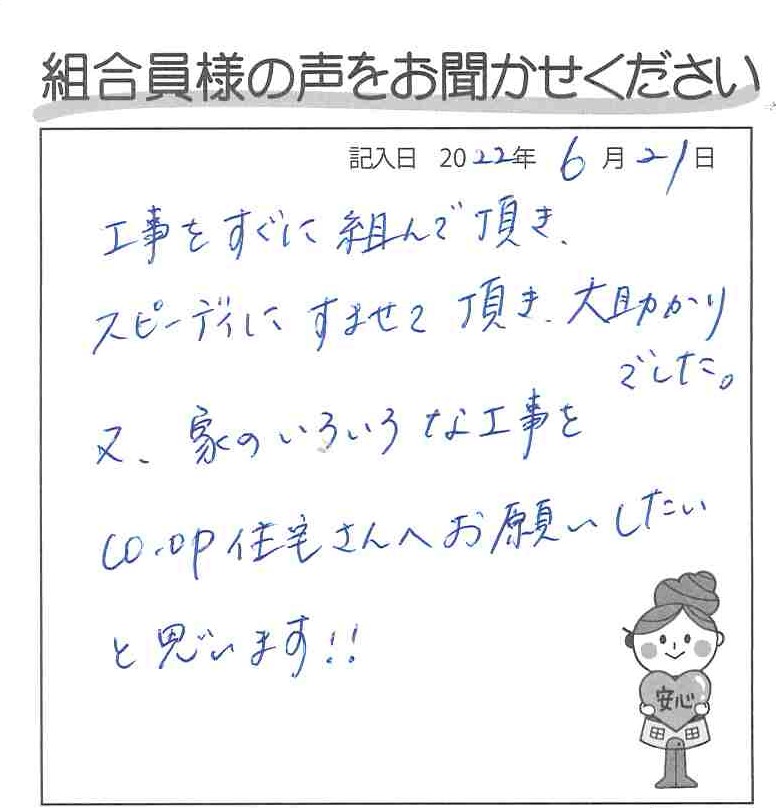 組合員様の声をお聞かせください
記入日 2022年 6月21日
工事をすぐに組んで頂き、
スピーディにすませて頂き、大助かり
でした。
又、家のいろいろな工事を
CO・OP住宅さんへお願いしたい
と思います!!
安心